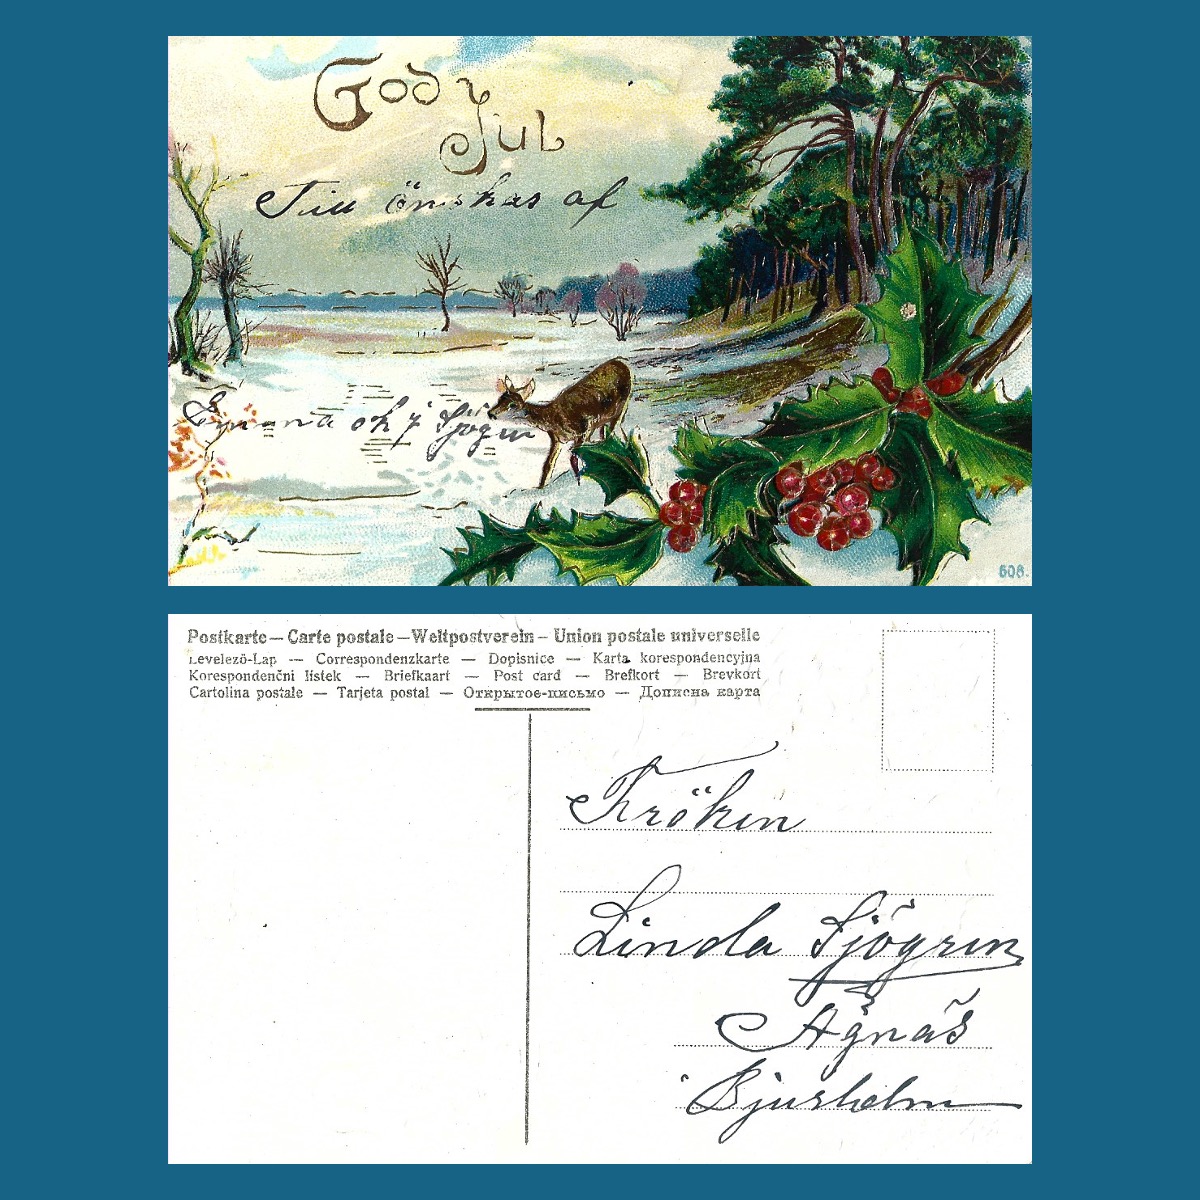 God
Jul
Till önskas af
Emma och J Sjögren
608.
Postkarte — Carte postale — Weltpostverein — Union postale universelle
Levelező-Lap — Correspondenzkarte — Dopisnice — Karta korespondencyjna
Korespondenčni listek — Briefkaart — Post card — Brefkort — Brevkort
Cartolina postale — Tarjeta postal — Открытое-письмо — Дописна карта
Fröken
Linda Sjögren
Ågnäs
Bjurholm